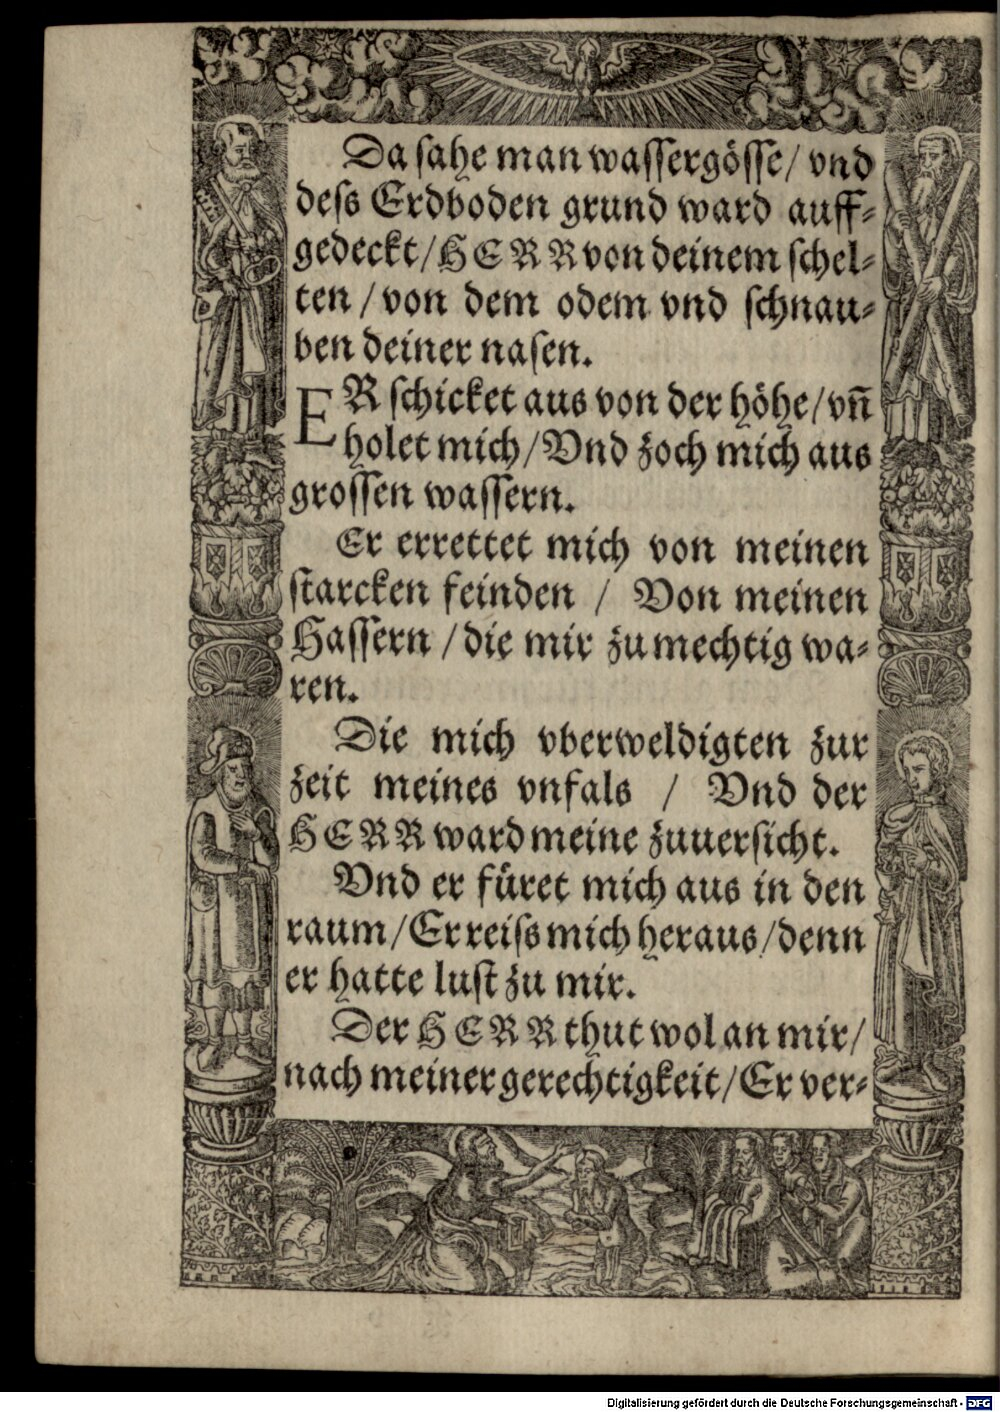 Da sahe man wassergösse/ vnd
dess Erdboden grund ward auff⸗
gedeckt/HERR von deinem schel⸗
ten /von dem odem vnd schnau⸗
ben deiner nasen.
ER schicket aus von der höhe/vn̄
holet mich/Vnd zoch mich aus
grossen wassern.
Er errettet mich von meinen
starcken feinden / Von meinen
Hassern /die mir zu mechtig wa⸗
ren.
Die mich vberweldigten zur
zeit meines vnfals / Vnd der
HERR ward meine zuuersicht.
Vnd er füret mich aus in den
raum/Er reiss mich heraus/denn
er hatte lust zu mir.
Der HERR thut wol an mir/
nach meiner gerechtigkeit/Er ver⸗
Digitalisierung gefördert durch die Deutsche Forschungsgemeinschaft - DFG